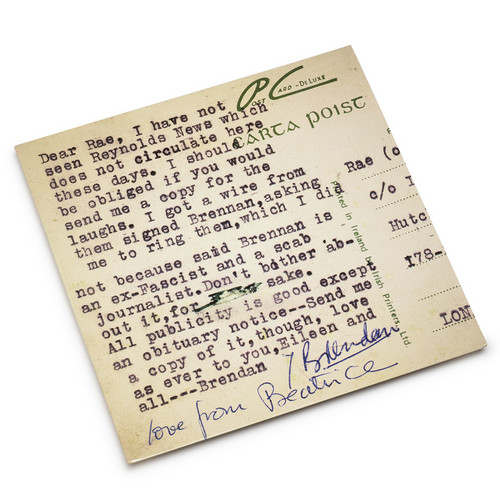 Post Card - DeLuxe
CARTA POIST
Dear Rae, I have not
seen Reynolds News which
does not circulate here
these days. I should
be obliged if you would
send me a copy for the
laughs. I got a wire from
them signed Brennan,asking
me to ring them,which I did
not because said Brennan is
an ex-Fascist and a scab
journalist.Don't bither ab-
out it,for sake.
All publicity is good except
an obituary notice--Send me
a copy of it,though, love
as ever to you,Eileen and
all---Brendan
Brendan
love from Beatrice
Rae (o
c/o
Hutc
178-
LON
Printed in Ireland by Irish Printers, Ltd.